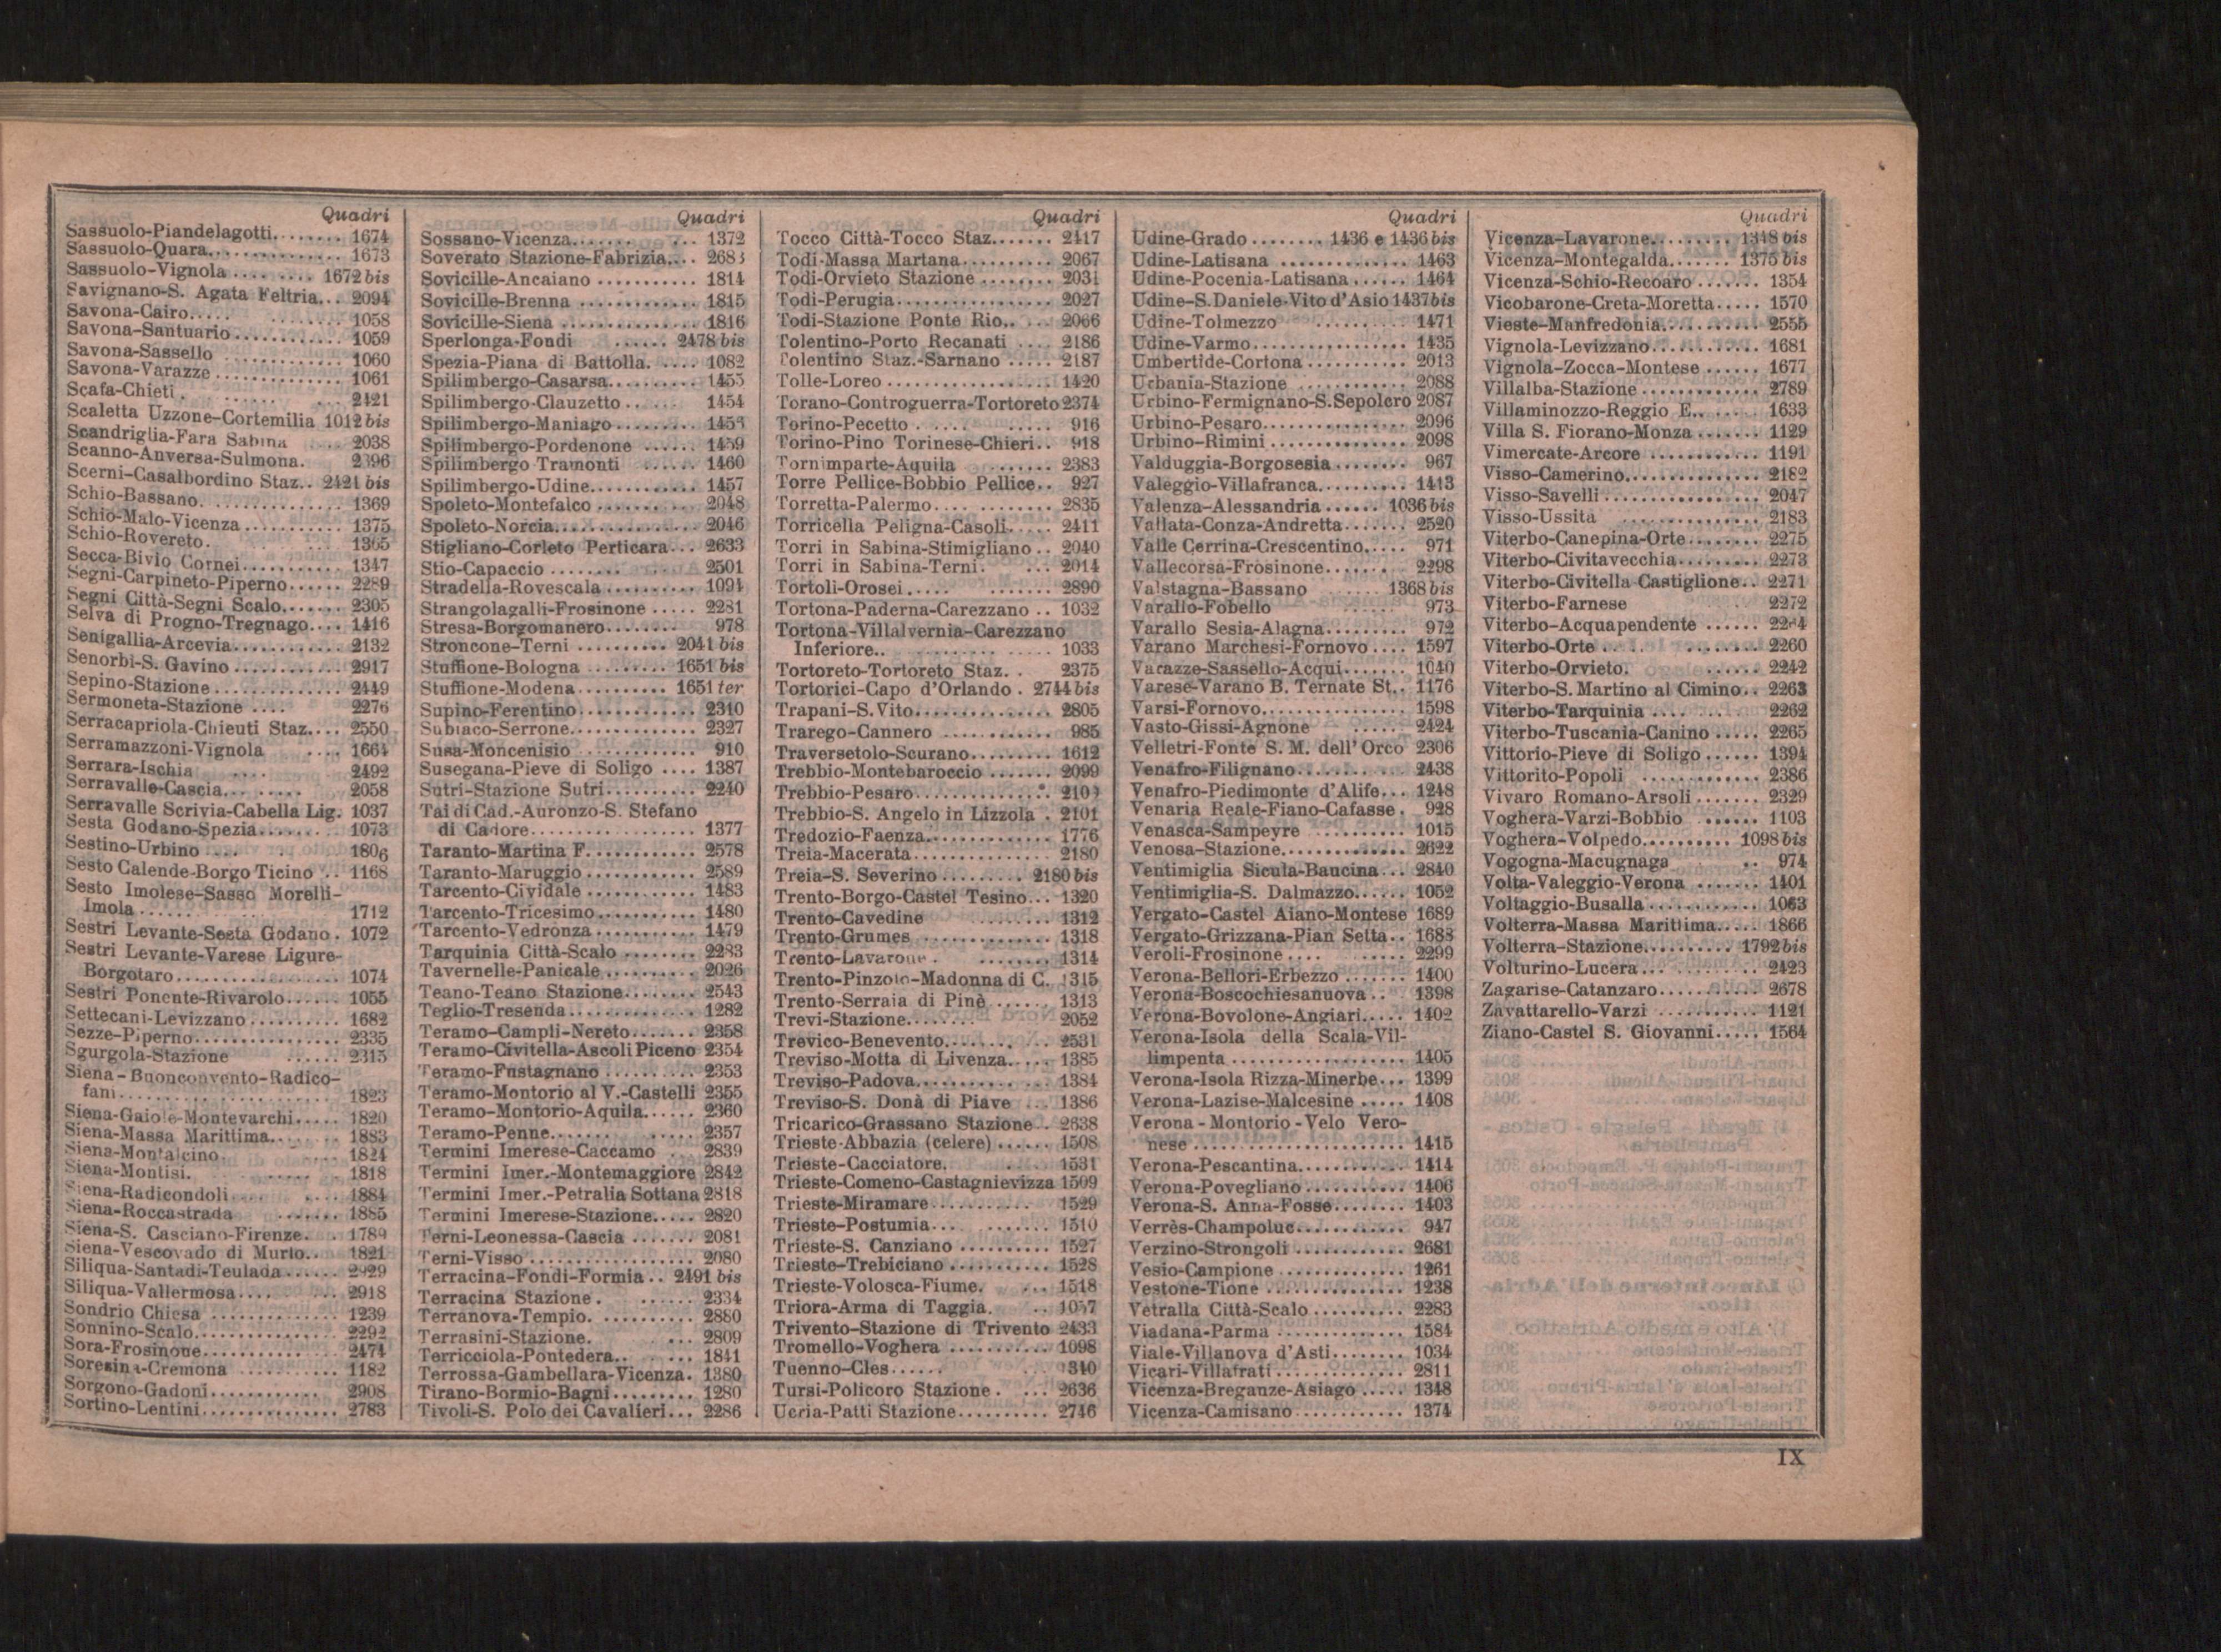 Quadri
Sassuolo-Piandelagotti........ 1674
Sassuolo-Quara.............. 1673
Sassuolo-Vignola ........ 1672 bis
Savignano-S. Agata Feltria... 2094
Savona-Cairo..... ........ 1058
Savona-Santuario............ 1059
Savona-Sassello ............ 1060
Savona-Varazze ............. 1061
Scafa-Chieti . ...... ... 2421
Scaletta Uzzone-Cortemilia 1012 bis
Scandriglia-Fara Sabina ... 2038
Scanno-Anversa-Sulmona. 2396
Scerni-Casalbordino Staz.. 2421 bis
Schio-Bassano. ............. 1369
Schio-Malo-Vicenza .......... 1375
Schio-Rovereto. ... 1365
Secca-Bivio Cornei........... 1347
Segni-Carpineto-Piperno...... 2289
Segni Città-Segni Scalo...... 2305
Selva di Progno-Tregnago.... 1416
Senigallia-Arcevia............ 2132
Senorbi-S. Gavino ........... 2917
Sepino-Stazione ............. 2449
Sermoneta-Stazione .... 2276
Serracapriola-Chieuti Staz.... 2550
Serramazzoni-Vignola .... 1664
Serrara-Ischia .... 2492
Serravalle-Cascia... ..... 2058
Serravalle Scrivia-Cabella Lig. 1037
Sesta Godano-Spezia........ 1073
Sestino-Urbino .... 1806
Sesto Calende-Borgo Ticino .. 1168
Sesto Imolese-Sasso Morelli-
Imola ...... .. 1712
Sestri Levante-Sesta Godano . 1072
Sestri Levante-Varese Ligure-
Borgotaro ................. 1074
Sestri Ponente-Rivarolo...... 1055
Settecani-Levizzano .......... 1682
Sezze-Piperno................ 2335
Sgurgola-Stazione ...... 2315
Siena-Buonconvento-Radico-
fani...................... 1823
Siena-Gaiole-Montevarchi..... 1820
Siena-Massa Marittima....... 1883
Siena-Montalcino. ... 1824
Siena-Montisi. ..... . 1818
Siena-Radicondoli .... .... 1884
Siena-Roccastrada ....... 1885
Siena-S. Casciano-Firenze. . 1789
Siena-Vescovado di Murlo.. 1821
Siliqua-Santadi-Teulada ...... 2929
Siliqua-Vallermosa.... ... 2918
Sondrio Chiesa .............. 1239
Sonnino-Scalo............... 2292
Sora-Frosinone.............. 2474
Soresina-Cremona ........... 1182
Sorgono-Gadoni............ 2908
Sortino-Lentini............... 2783
Quadri
Sossano-Vicenza....... ... 1372
Soverato Stazione-Fabrizia... 2683
Sovicille-Ancaiano ........... 1814
Sovicille-Brenna ............. 1815
Sovicille-Siena ............... 1816
Sperlonga-Fondi ...... 2478 bis
Spezia-Piana di Battolla. .... 1082
Spilimbergo-Casarsa.......... 1455
Spilimbergo-Clauzetto .. ... 1454
Spilimbergo-Maniago.........
Spilimbergo-Pordenone ...... 1459
Spilimbergo Tramonti ...... 1460
Spilimbergo-Udine............ 1457
Spoleto-Montefalco ........... 2048
Spoleto-Norcia................ 2046
Stigliano-Corleto Perticara... 2633
Stio-Capaccio ........ .. 2501
Stradella-Rovescala .......... 1094
Strangolagalli-Frosinone ..... 2281
Stresa-Borgomanero........ 978
Stroncone-Terni .......... 2041 bis
Stuffione-Bologna ......... 1651 bis
Stuffione-Modena.......... 1651 ter
Supino-Ferentino............. 2310
Subiaco-Serrone.............. 2327
Susa-Moncenisio ............ 910
Susegana-Pieve di Soligo .... 1387
Sutri-Stazione Sutri.......... 2240
Tai di Cad.-Auronzo-S. Stefano
di Cadore.................. 1377
Taranto-Martina F. ........... 2578
Taranto-Maruggio ............ 2589
Tarcento-Cividale ............ 1483
Tarcento-Tricesimo........... 1480
Tarcento-Vedronza ........... 1479
Tarquinia Città-Scalo ........ 2283
Tavernelle-Panicale .......... 2026
Teano-Teano Stazione........ 2543
Teglio-Tresenda .............. 1282
Teramo-Campli-Nereto....... 2358
Teramo-Civitella-Ascoli Piceno 2354
Teramo-Fustagnano .......... 2353
Teramo-Montorio al V.-Castelli 2355
Teramo-Montorio-Aquila...... 2360
Teramo-Penne....... ..... 2357
Termini Imerese-Caccamo ... 2839
Termini Imer.-Montemaggiore 2842
Termini Imer.-Petralia Sottana 2818
Termini Imerese-Stazione..... 2820
Terni-Leonessa-Cascia ....... 2081
Terni-Visso .................. 2080
Terracina-Fondi-Formia .. 2491 bis
Terracina Stazione . ...... 2334
Terranova-Tempio. .......... 2880
Terrasini-Stazione. ... 2809
Terricciola-Pontedera.. ... 1841
Terrossa-Gambellara-Vicenza. 1380
Tirano-Bormio-Bagni......... 1280
Tivoli-S. Polo dei Cavalieri... 2286
Quadri
Tocco Città-Tocco Staz....... 2417
Todi-Massa Martana.......... 2067
Todi-Orvieto Stazione ........ 2031
Todi-Perugia................. 2027
Todi-Stazione Ponte Rio.. .. 2066
Tolentino-Porto Recanati .... 2186
Tolentino Staz.-Sarnano ..... 2187
Tolle-Loreo .................. 1420
Torano-Controguerra-Tortoreto 2374
Torino-Pecetto . .... ..... 916
Torino-Pino Torinese-Chieri.. 918
Tornimparte-Aquila ....... 2383
Torre Pellice-Bobbio Pellice.. 927
Torretta-Palermo.... ........ 2835
Torricella Peligna-Casoli..... 2411
Torri in Sabina-Stimigliano .. 2040
Torri in Sabina-Terni. ... 2014
Tortoli-Orosei ..... ....... 2890
Tortona-Paderna-Carezzano .. 1032
Tortona-Villalvernia-Carezzano
Inferiore.. .......... ..... 1033
Tortoreto-Tortoreto Staz. . 2375
Tortorici-Capo d'Orlando . 2744 bis
Trapani-S. Vito............... 2805
Trarego-Cannero ............ 985
Traversetolo-Scurano......... 1612
Trebbio-Montebaroccio ....... 2099
Trebbio-Pesaro...............
Trebbio-S. Angelo in Lizzola . 2101
Tredozio-Faenza.............. 1776
Treia-Macerata............... 2180
Treia-S. Severino ......... 2180 bis
Trento-Borgo-Castel Tesino... 1320
Trento-Cavedine ........ 1312
Trento-Grumes .............. 1318
Trento-Lavarone . ........ 1314
Trento-Pinzolo-Madonna di C. 1315
Trento-Serraia di Pinè ...... 1313
Trevi-Stazione........ 2052
Trevico-Benevento........ .. 2531
Treviso-Motta di Livenza..... 1385
Treviso-Padova.............. 1384
Treviso-S. Donà di Piave ... 1386
Tricarico-Grassano Stazione .. 2638
Trieste-Abbazia (celere) ...... 1508
Trieste-Cacciatore. ... 1531
Trieste-Comeno-Castagnievizza 1509
Trieste-Miramare ........... 1529
Trieste-Postumia... ....... 1510
Trieste-S. Canziano .......... 1527
Trieste-Trebiciano ........... 1528
Trieste-Volosca-Fiume. ... 1518
Triora-Arma di Taggia. ..
Trivento-Stazione di Trivento 2433
Tromello-Voghera ........... 1098
Tuenno-Cles...... 1310
Tursi-Policoro Stazione . ... 2636
Ucria-Patti Stazione.......... 2746
Quadri
Udine-Grado ........ 1436 e 1436 bis
Udine-Latisana .............. 1463
Udine-Pocenia-Latisana ...... 1464
Udine-S. Daniele-Vito d'Asio 1437 bis
Udine-Tolmezzo .......... 1471
Udine-Varmo................. 1435
Umbertide-Cortona ........... 2013
Urbania-Stazione ........... 2088
Urbino-Fermignano-S. Sepolcro 2087
Urbino-Pesaro............... 2096
Urbino-Rimini ............... 2098
Valduggia-Borgosesia ........ 967
Valeggio-Villafranca.......... 1413
Valenza-Alessandria ...... 1036 bis
Vallata-Conza-Andretta....... 2520
Valle Cerrina-Crescentino..... 971
Vallecorsa-Frosinone....... 2298
Valstagna-Bassano ...... 1368 bis
Varallo-Fobello ...... 973
Varallo Sesia-Alagna......... 972
Varano Marchesi-Fornovo .... 1597
Varazze-Sassello-Acqui....... 1040
Varese-Varano B. Ternate St.. 1176
Varsi-Fornovo................ 1598
Vasto-Gissi-Agnone ..... 2424
Velletri-Fonte S. M. dell'Orco 2306
Venafro-Filignano........ ... 2438
Venafro-Piedimonte d'Alife... 1248
Venaria Reale-Fiano-Cafasse. 928
Venasca-Sampeyre .......... 1015
Venosa-Stazione............. 2622
Ventimiglia Sicula-Baucina... 2840
Ventimiglia-S. Dalmazzo...... 1052
Vergato-Castel Aiano-Montese 1689
Vergato-Grizzana-Pian Setta.. 1688
Veroli-Frosinone .... ..... 2299
Verona-Bellori-Erbezzo ....... 1400
Verona-Boscochiesanuova .. 1398
Verona-Bovolone-Angiari..... 1402
Verona-Isola della Scala-Vil-
limpenta ................... 1405
Verona-Isola Rizza-Minerbe... 1399
Verona-Lazise-Malcesine ..... 1408
Verona-Montorio-Velo Vero-
nese ....................... 1415
Verona-Pescantina............ 1414
Verona-Povegliano ........... 1406
Verona-S. Anna-Fosse........ 1403
Verrès-Champoluc............ 947
Verzino-Strongoli ............ 2681
Vesio-Campione ............. 1261
Vestone-Tione ............... 1238
Vetralla Città-Scalo .......... 2283
Viadana-Parma .............. 1584
Viale-Villanova d'Asti........ 1034
Vicari-Villafrati .............. 2811
Vicenza-Breganze-Asiago ..... 1348
Vicenza-Camisano ............ 1374
Quadri
Vicenza-Lavarone......... 1348 bis
Vicenza-Montegalda....... 1375 bis
Vicenza-Schio-Recoaro ....... 1354
Vicobarone-Creta-Moretta..... 1570
Vieste-Manfredonia........... 2555
Vignola-Levizzano............ 1681
Vignola-Zocca-Montese ...... 1677
Villalba-Stazione ............. 2789
Villaminozzo-Reggio E.. .... 1633
Villa S. Fiorano-Monza ....... 1129
Vimercate-Arcore ............ 1191
Visso-Camerino............... 2182
Visso-Savelli ................. 2047
Visso-Ussita ............... 2183
Viterbo-Canepina-Orte........ 2275
Viterbo-Civitavecchia......... 2273
Viterbo-Civitella Castiglione.. 2271
Viterbo-Farnese 2272
Viterbo-Acquapendente ......
Viterbo-Orte .. .. ........ 2260
Viterbo-Orvieto. ...... 2242
Viterbo-S. Martino al Cimino.. 2263
Viterbo-Tarquinia .... .... 2262
Viterbo-Tuscania-Canino ..... 2265
Vittorio-Pieve di Soligo ...... 1394
Vittorito-Popoli ............. 2386
Vivaro Romano-Arsoli ....... 2329
Voghera-Varzi-Bobbio ...... 1103
Voghera-Volpedo.......... 1098 bis
Vogogna-Macugnaga .. 974
Volta-Valeggio-Verona ....... 1401
Voltaggio-Busalla ............ 1063
Volterra-Massa Marittima..... 1866
Volterra-Stazione.......... 1792 bis
Volturino-Lucera... ......... 2423
Zagarise-Catanzaro........... 2678
Zavattarello-Varzi ........... 1121
Ziano-Castel S. Giovanni..... 1564
IX